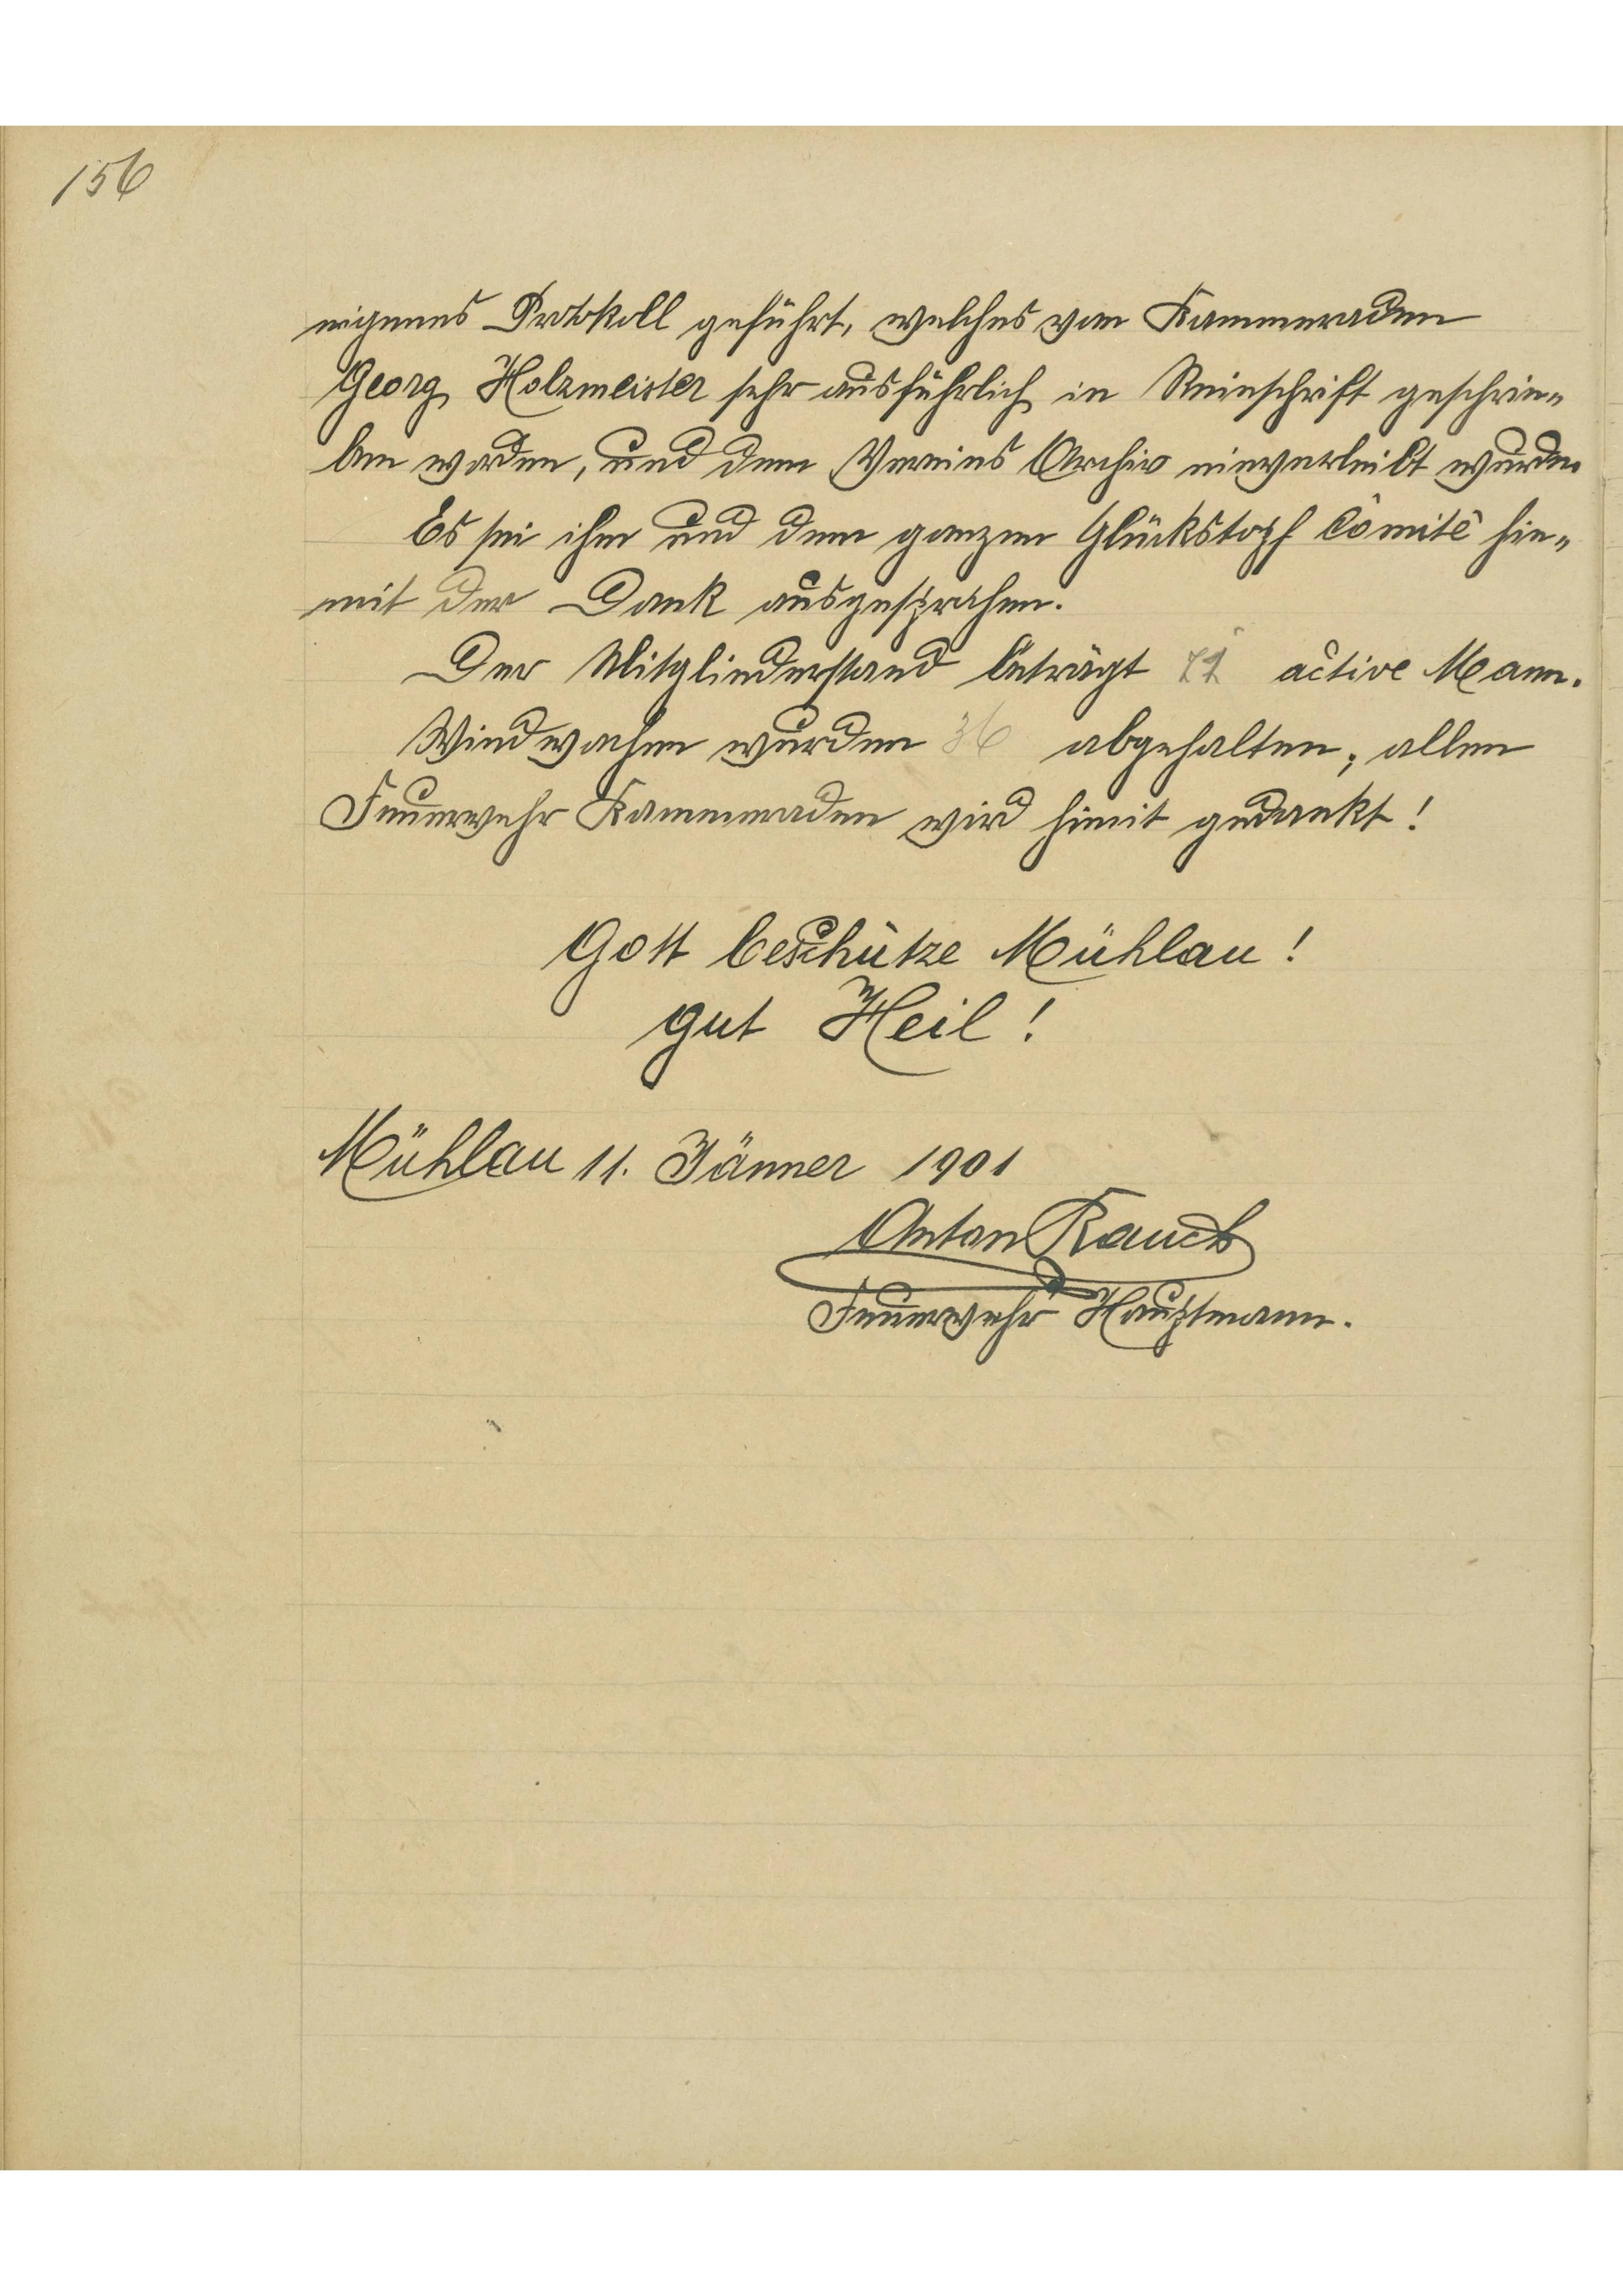 156
eigenes Protokoll geführt, welches von Kammeraden
Georg Holzmeister sehr ausführlich in Reinschrift geschrie„
ben worden, und dem Vereins Archiv einverleibt wurde.
Es sei ihm und dem ganzen Glückstopf Comité hie„
mit der Dank ausgesprochen.
Der Mitgliederstand beträgt active Mann.
Windwachen wurden 36 abgehalten, allen
Feuerwehr Kammeraden wird himit gedankt!
Gott beschütze Mühlau!
gut Heil!
Mühlau 11. Jänner 1901
Anton Rauch
Feuerwehr Hauptmann.